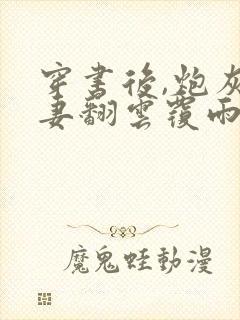 穿書後,炮灰
妻翻雲覆雨
魔鬼蛙動漫